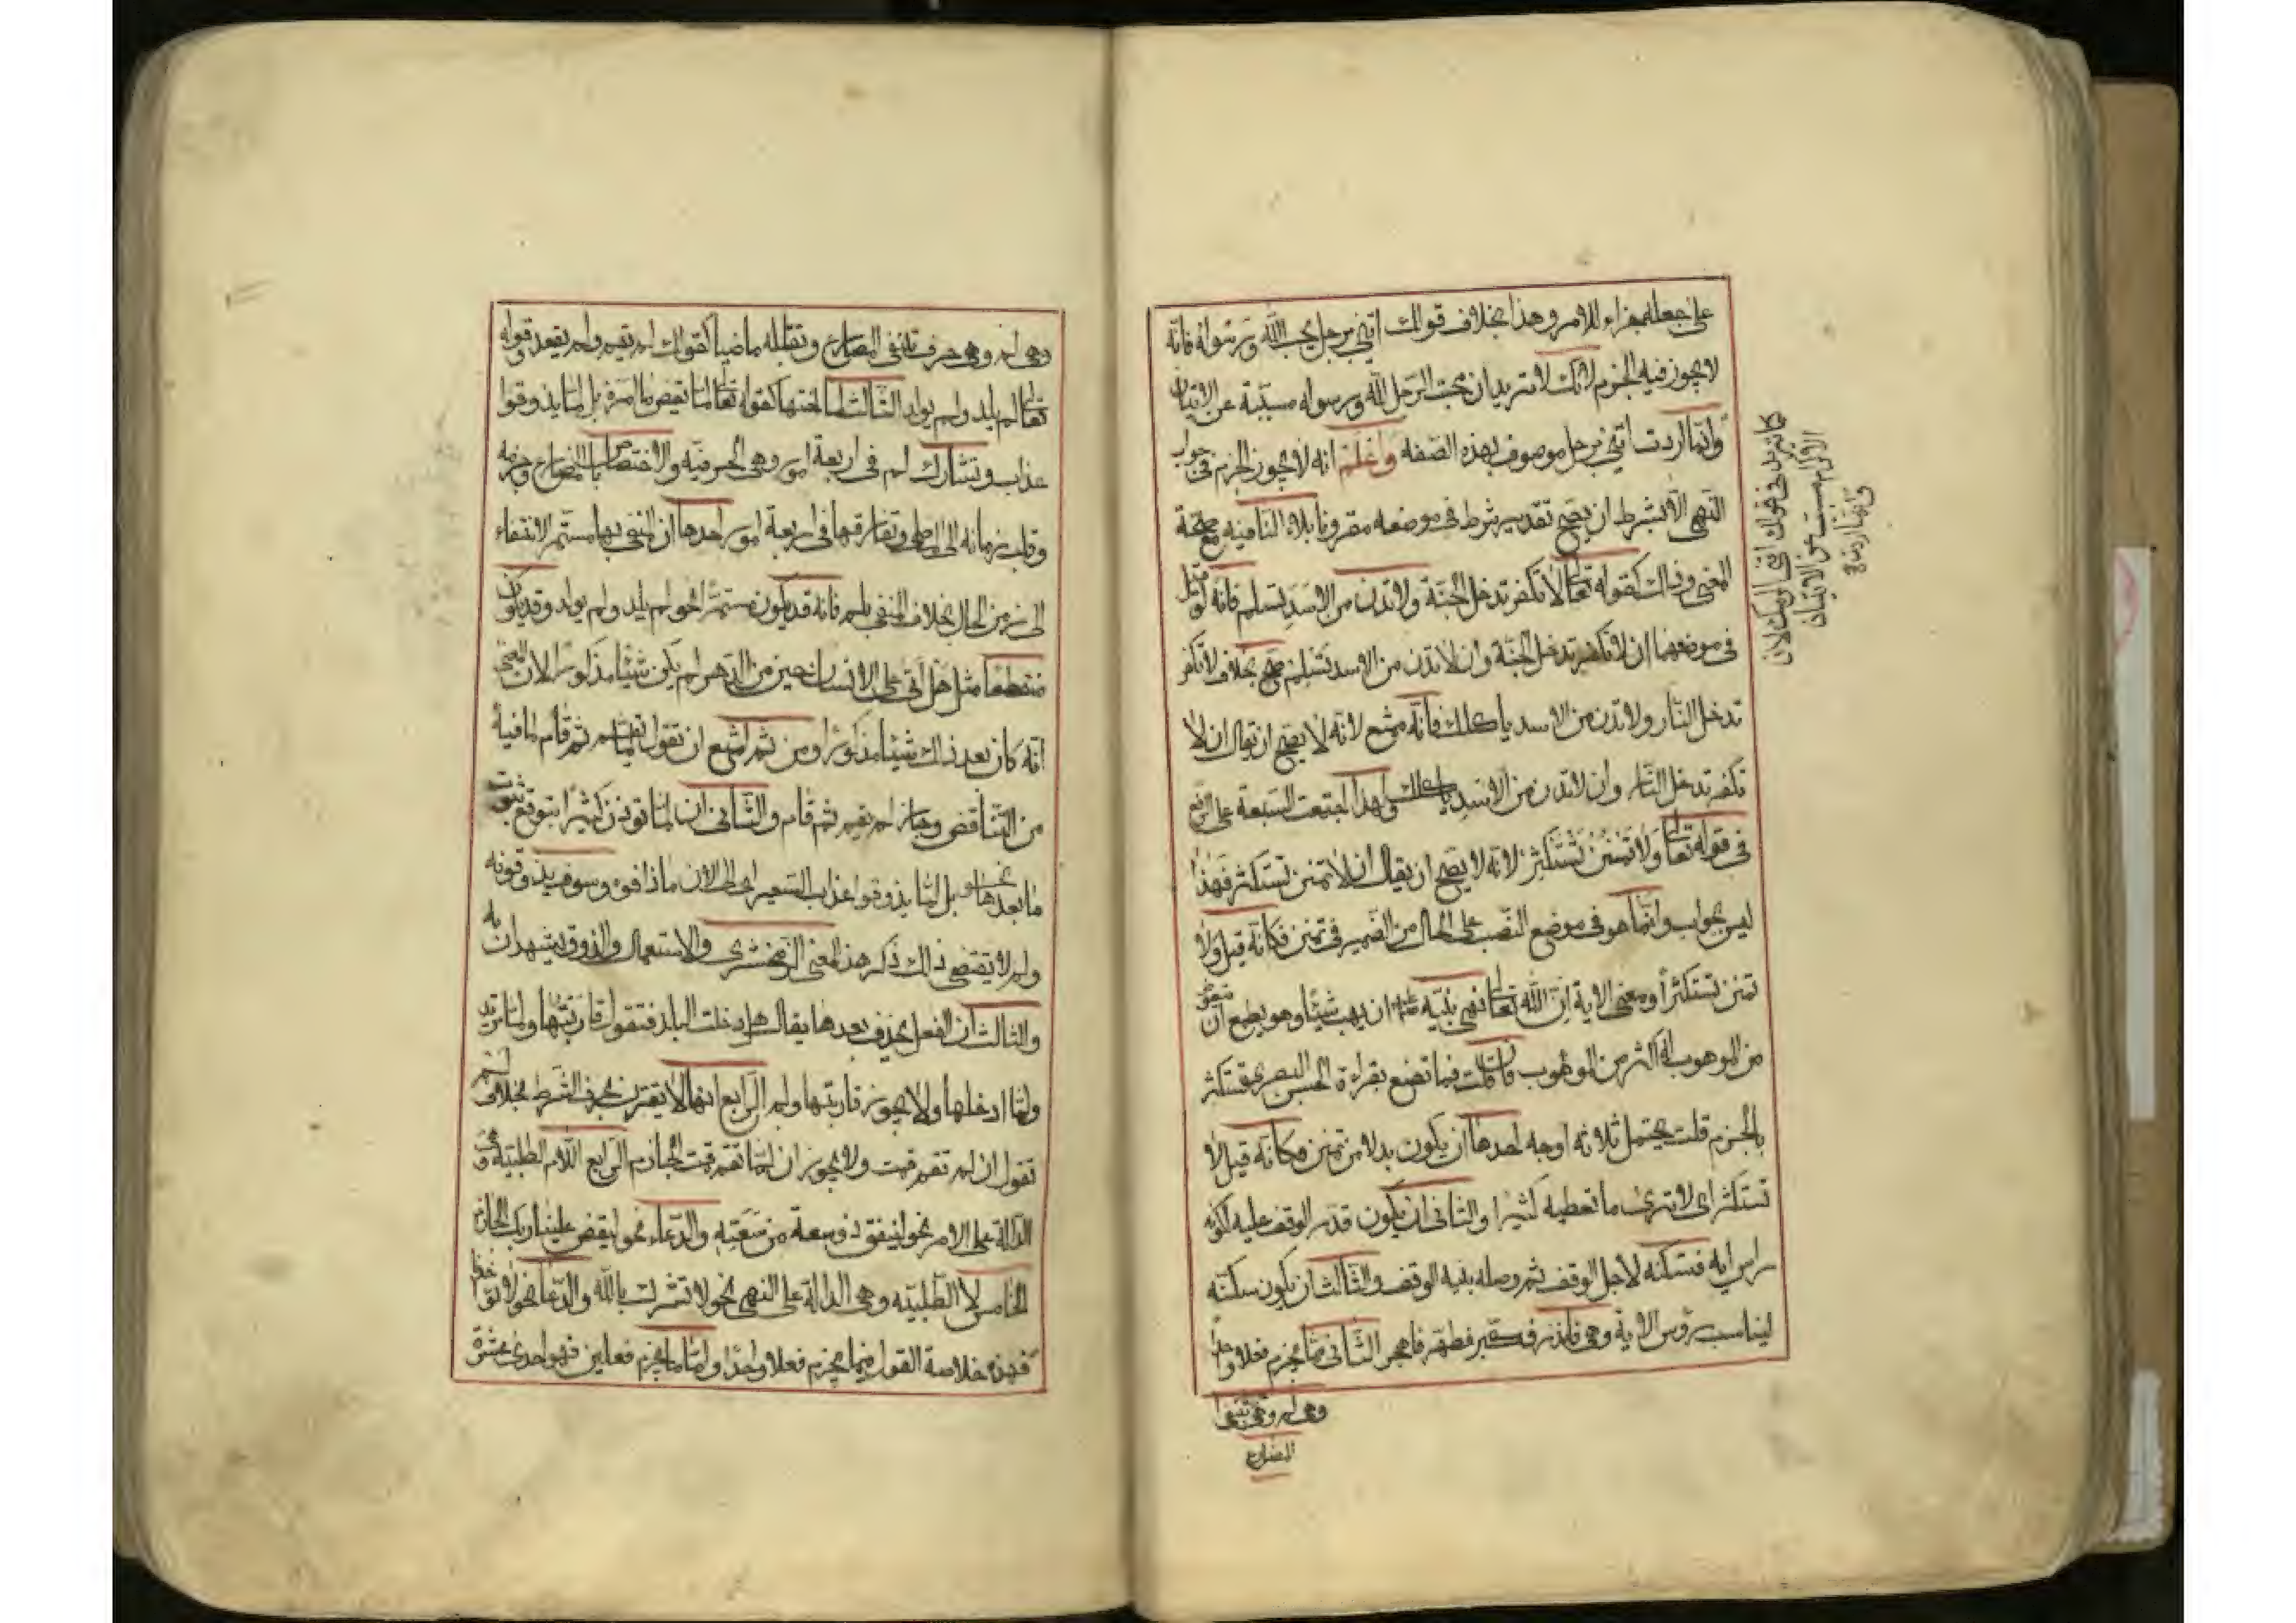 على جعله جزاء للامر وهذا بخلاف قولك ائتني برجل يحب الله ورسوله فانه
لا يجوز فيه الجزم لانك لا تريد ان محبت الرجل لله ورسوله مسببة عن الاتيان
وانما اردت ائتني برجل موصوف بهذه الصفه واعلم انه لا يجوز الجزم في جواب
النهي الا بشرط ان يصح تقدير شرط في موضعه مقرونا بلاء النافيه مع صحة
المعنى وذلك كقوله تعالى لا تكفر تدخل الجنة ولا تدن من الاسد تسلم فانه لو قيل
في موضعهما ان لا تكفر تدخل الجنة وان لا تدن من الاسد تسلم صح بخلاف لا تكفر
تدخل النار ولا تدن من الاسد ياكلك فانه ممتنع لانه لا يصح ان يقال ان لا
تكفر تدخل النار وان لا تدن من الاسد ياكلك ولهذا اجتمعت السبعة على الرفع
في قوله تعالى ولا تمنن تستكثر لانه لا يصح ان يقال ان لا تمنن تستكثر فهذا
ليس بجواب وانما هو في موضع النصب على الحال من الضمير في تمنن فكانه قيل ولا
تمنن تستكثرا ومعنى الاية ان الله تعالى نهى نبيه ان يهب شيئا وهو يطمع ان يتعوض
من الموهوب له اكثر من الموهوب فان قلت فما تصنع بقراءة الحسن البصري تستكثر
بالجزم قلت يحتمل ثلاثه اوجه احدها ان يكون بدلا من تمنن فكانه قيل لا
تستكثر اي لا ترى ما تعطيه كثيرا والثاني ان يكون قدر الوقف عليه لكونه
راس ايه فسكنه لاجل الوقف ثم وصله بنيه الوقف والثالث ان يكون سكنه
ليناسب رؤس الاية وهي فانذر فكبر فطهر فاهجر الثاني مما يجزم فعلا واحدا
وهي لم وهي تنفي
المضارع
كانه في قولك ائتني اكرمك لان
الاكرام مسبب عن الاتيان
وانما اردت
وهي لم وهي حرف تنفي المضارع وتقلبه ماضيا كقولك لم يقم ولم يقعد وقوله
تعالى لم يلد ولم يولد الثالث لما اختها كقوله تعالى لما يقض ما امره بل لما يذوقوا
عذاب وتشارك لم في اربعة امور وهي الحرفيه والاختصاص بالمضارع وجزمه
وقلب زمانه الى الماضي وتفارقها في اربعة امور احدها ان المنفي بها مستمر الانتفاء
الى زمن الحال بخلاف المنفي بلم فانه قد يكون مستمرا نحو لم يلد ولم يولد وقد يكون
منقطعا مثل هل اتى على الانسان حين من الدهر لم يكن شيئا مذكورا لان المعنى
انه كان بعد ذلك شيئا مذكورا ومن ثم امتنع ان تقول لما يقم ثم قام لما فيه
من التناقض وجاز لم يقم ثم قام والثاني ان لما تؤذن كثيرا بتوقع ثبوت
ما بعدها نحو بل لما يذوقوا عذاب السعير اي الى الان ما ذاقوه وسوف يذوقونه
ولم لا يقتضي ذلك ذكر هذا المعنى الزمخشري والاستعمال والذوق يشهدان به
والثالث ان الفعل يحذف بعدها يقال هل دخلت البلد فتقول قاربتها ولما تريد
ولما ادخلها ولا يجوز قاربتها ولم الرابع انها لا يقترن بحرف الشرط بخلاف لم
تقول ان لم تقم قمت ولا يجوز ان لما تقم قمت الجازم الرابع اللام الطلبية وهي
الدالة على الامر نحو لينفق ذو سعة من سعته والدعاء نحو ليقض علينا ربك الجازم
الخامس لا الطلبيه وهي الدالة على النهي نحو لا تشرك بالله والدعاء نحو لا تؤاخذنا
فهذه خلاصة القول فيما يجزم فعلا واحدا واما ما يجزم فعلين فهو احدى عشرة